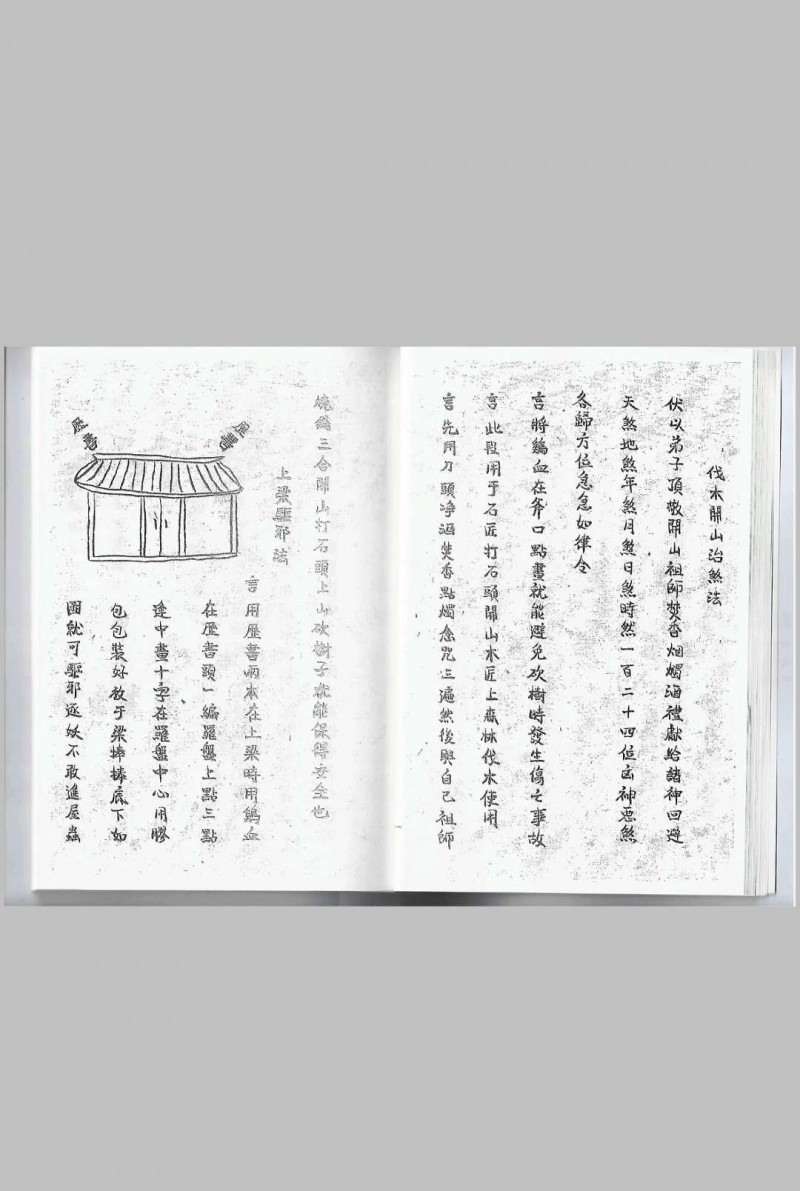 伐木開山治煞法
伏以弟子頂敬開山祖師焚香烟燭酒禮獻給諸神回避
天煞地煞年煞月煞日煞時然一百二十四位凶神惡煞
各歸方位急急如律令
言將鷄血在斧口點畫就能避免砍樹時發生傷亡事故
言此段用于石匠打石頭開山木匠上森林伐木使用
言先用刀頭净酒焚香點燭念咒三遍然後與自己祖師
燒錢三合開山打石頭上山砍樹子就能保得安全也
上梁驅邪法
言用歷書兩本在上梁時用鷄血
在歷書頭一編羅盤上點三點
逢中畫十字在羅盤中心用膠
包包裝好放于梁棒棒底下如
圖就可驅邪逐妖不敢進屋蟲
歷書
歷書